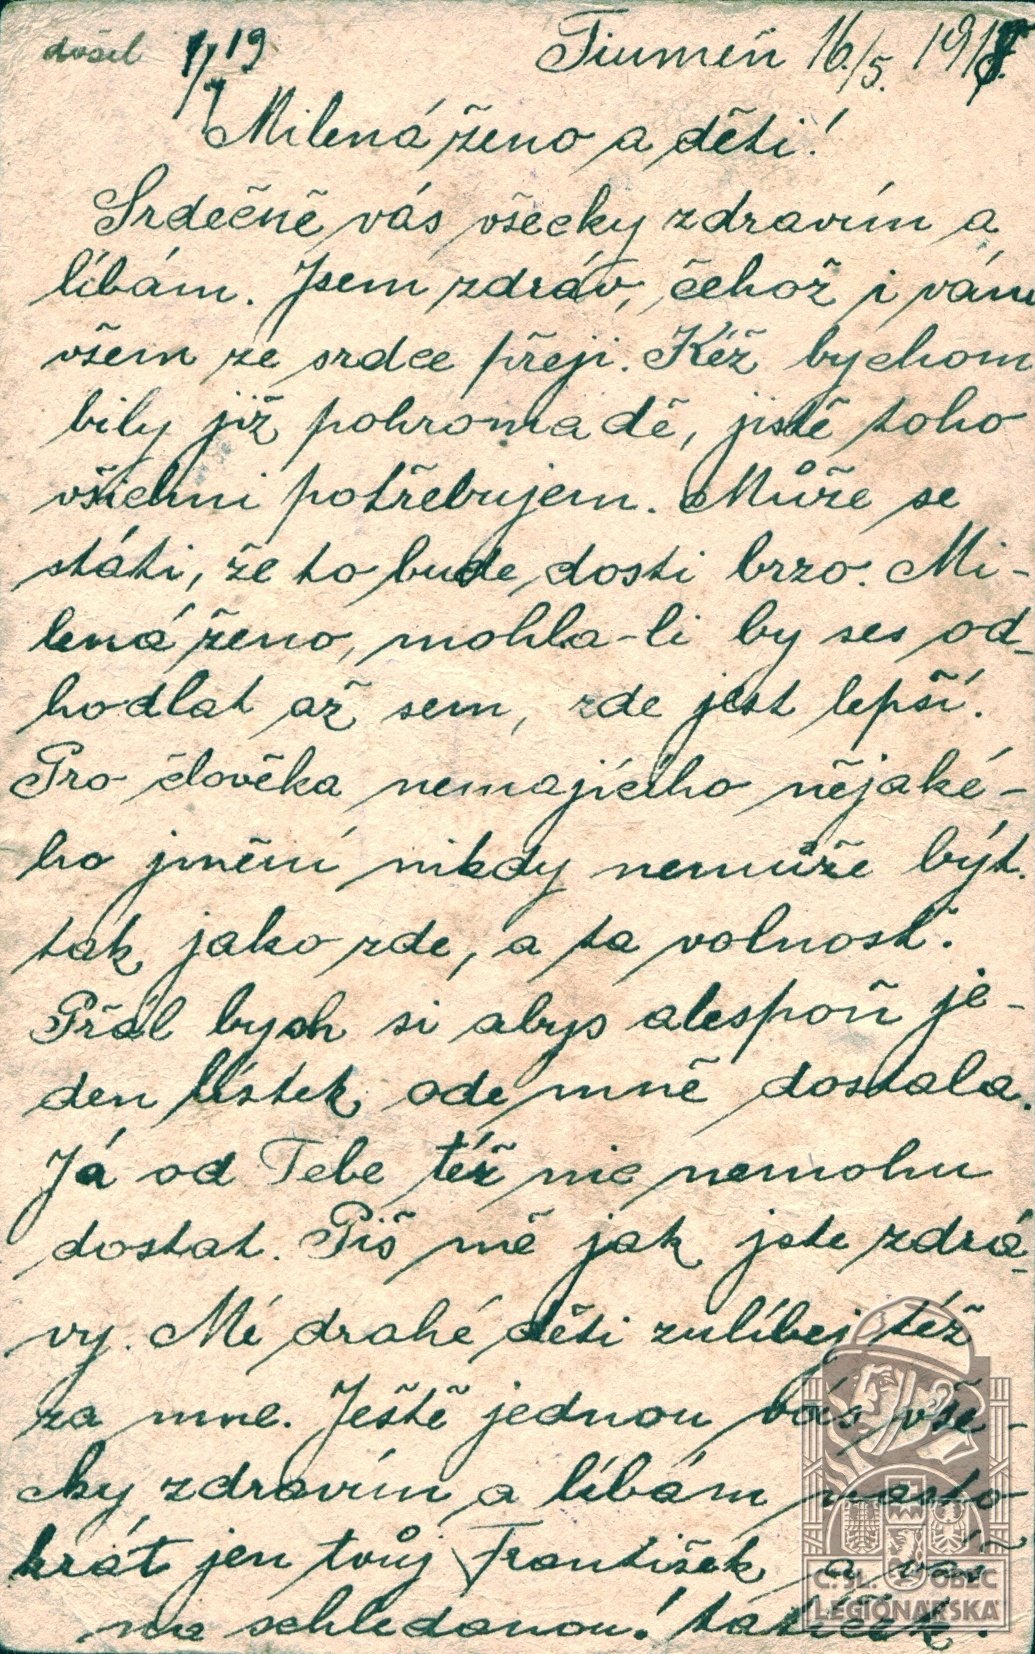 došel 1/7 19
Tiumeň 16./5. 1918.
Milená ženo a děti!
Srdečně vás všecky zdravím a
líbám. Jsem zdráv, čehož i vám
všem ze srdce přeji. Kéž bychom
bily již pohromadě, jistě toho
všichni potřebujem. Může se
státi, že to bude dosti brzo. Mi-
lená ženo, mohla-li by ses od-
hodlat až sem, zde jest lepší.
Pro člověka nemajícího nějaké-
ho jmění nikdy nemůže být
tak jako zde, a ta volnost.
Přál bych si abys alespoň je-
den lístek ode mně dostala.
Já od Tebe též nic nemohu
dostat. Piš mě jak jste zdrá-
vy. Mé drahé děti zulíbej též
za mne. Ještě jednou vás vše-
cky zdravím a líbám mnoho
krát jen tvůj František a váš
na schledanou! tatíček.
Č. SL. OBEC
LEGIONÁŘSKÁ